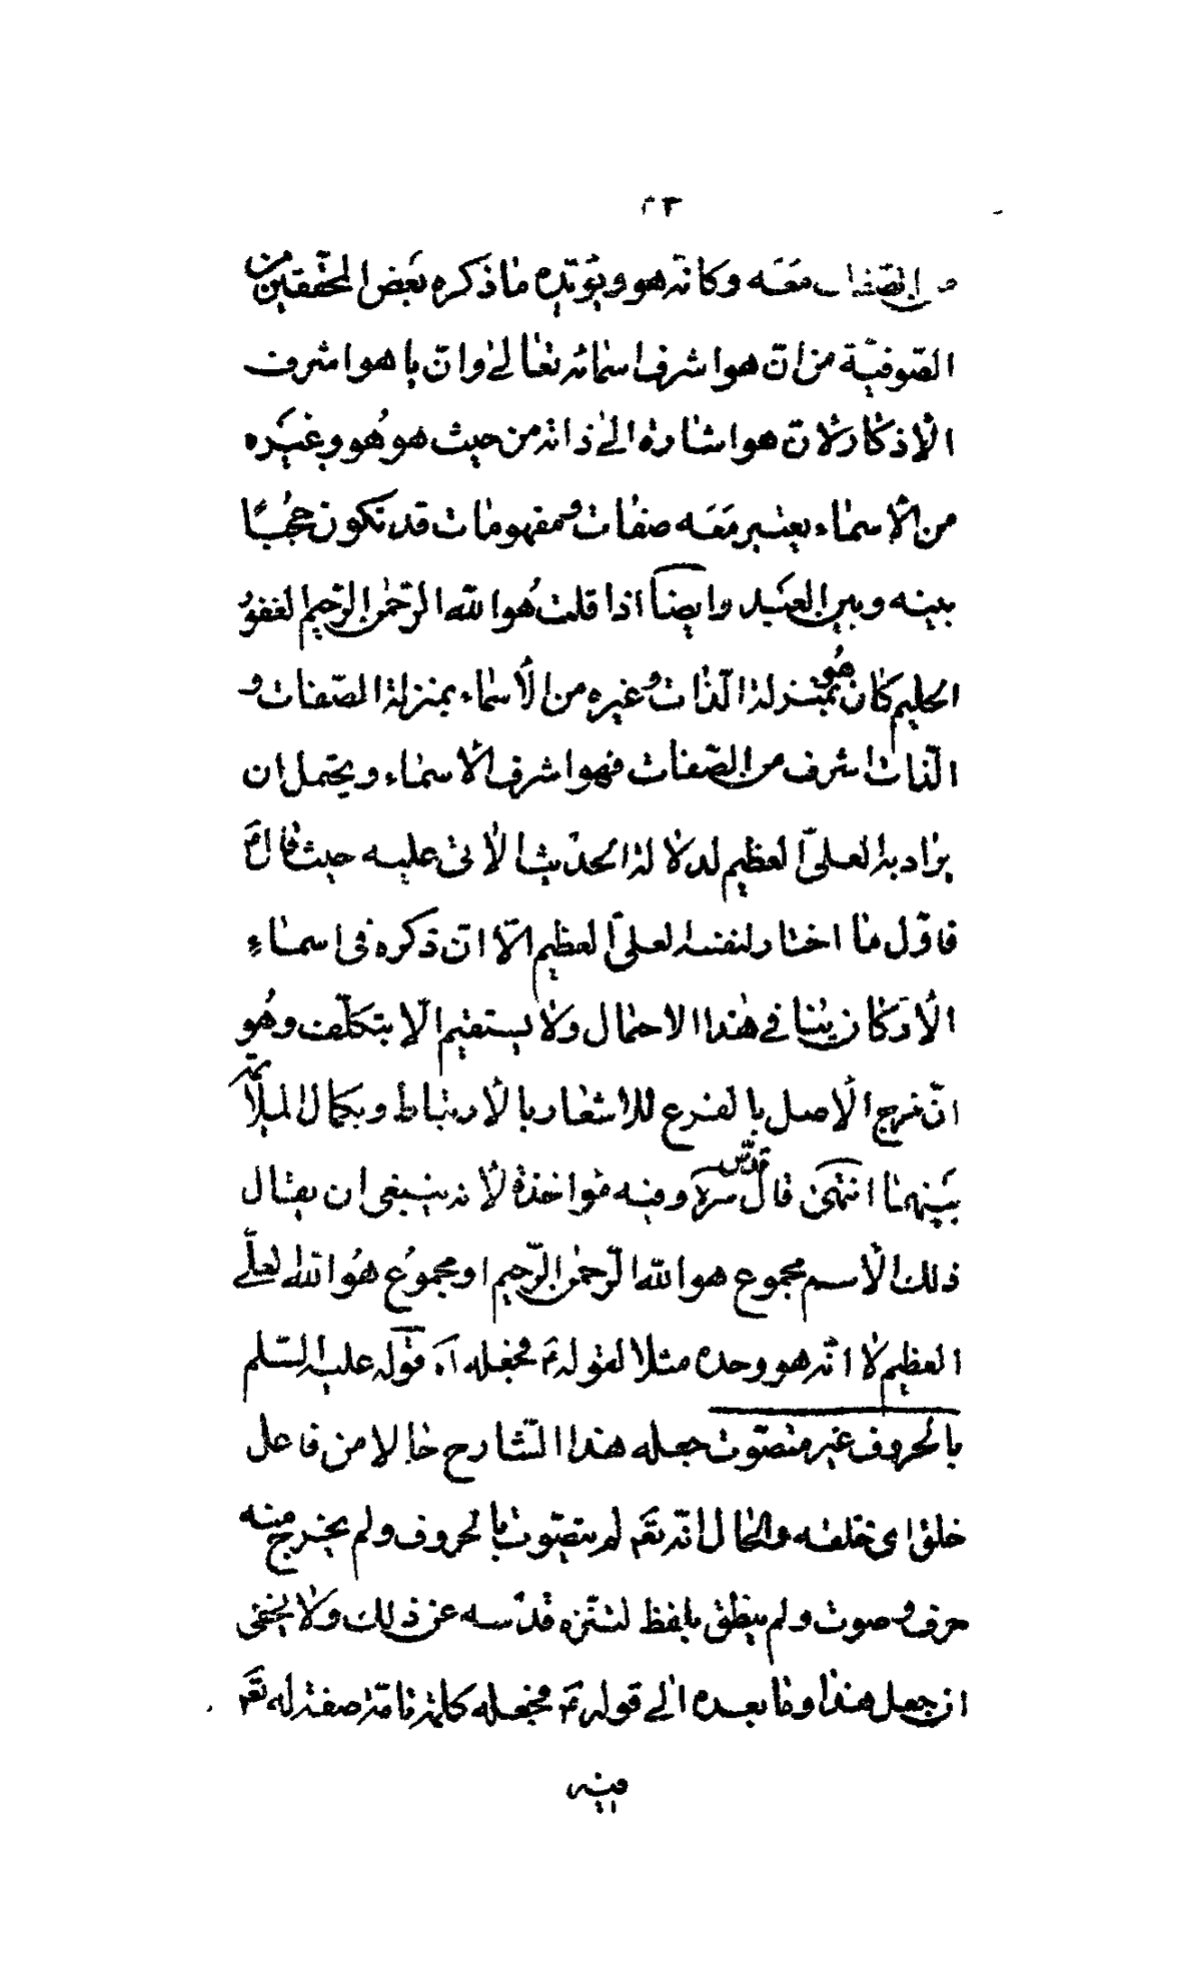 ٢٣
من الصّفات معَه وكانّه هو ويؤيّده ما ذكره بَعض المحقّقين من
الصّوفيّة من انّ هو اشرف اسمائه تعالىٰ وانّ يا هو اشرف
الأذكار لأنّ هو اشارة الىٰ ذاته من حيث هو هُو وغيَره
من الأسماء يعتبر معَه صفات ومفهومات قد تكون حجُبًا
بينه وبين العبَد وايضًا اذا قلت هُو الله الرّحمٰن الرّحيم الغفور
الحليم كان هُو بمنزلة الذّات وغيره من الأسماء بمنزلة الصّفات و
الذّات اشرف من الصّفات فهو اشرف الأسماء ويحتمل ان
يراد به العلىّ العظيم لدلالة الحديث الأتى عليه حيث قال ع
فاوّل ما اختار لنفسه العلىّ العظيم الّا انّ ذكره فى اسماء
الأركان ينافى هٰذا الاحتمال ولا يستقيم الّا بتكلّف وهُو
انّ مزج الأصل بالفرع للاشعار بالأرتباط وبكمال الملائمة
بَينهما انتهىٰ قال قدّس سرّه وفيه مؤاخذة لأنه ينبغى ان يقال
ذلك الأسم مجموع هو الله الرّحمٰن الرّحيم او مجموُع هُو الله العلّى
العظيم لا انّه هو وحده مثلا لقوله ع فجعله اه قوله عليه السّلم
بالحروف غير متصوّت جعله هذا الشّارح حالا من فاعل
خلق اى خلقه والحال انّه تعَ لم يتصوّت بالحروف ولم يخرج منه
حرف وصوت ولم ينطق بلفظ لتنزّه قدسه عن ذلك ولا يخفى
ان جعل هذا وما بعده الى قوله ع فجعله كلمة تامّة صفة له تعَ
فيه